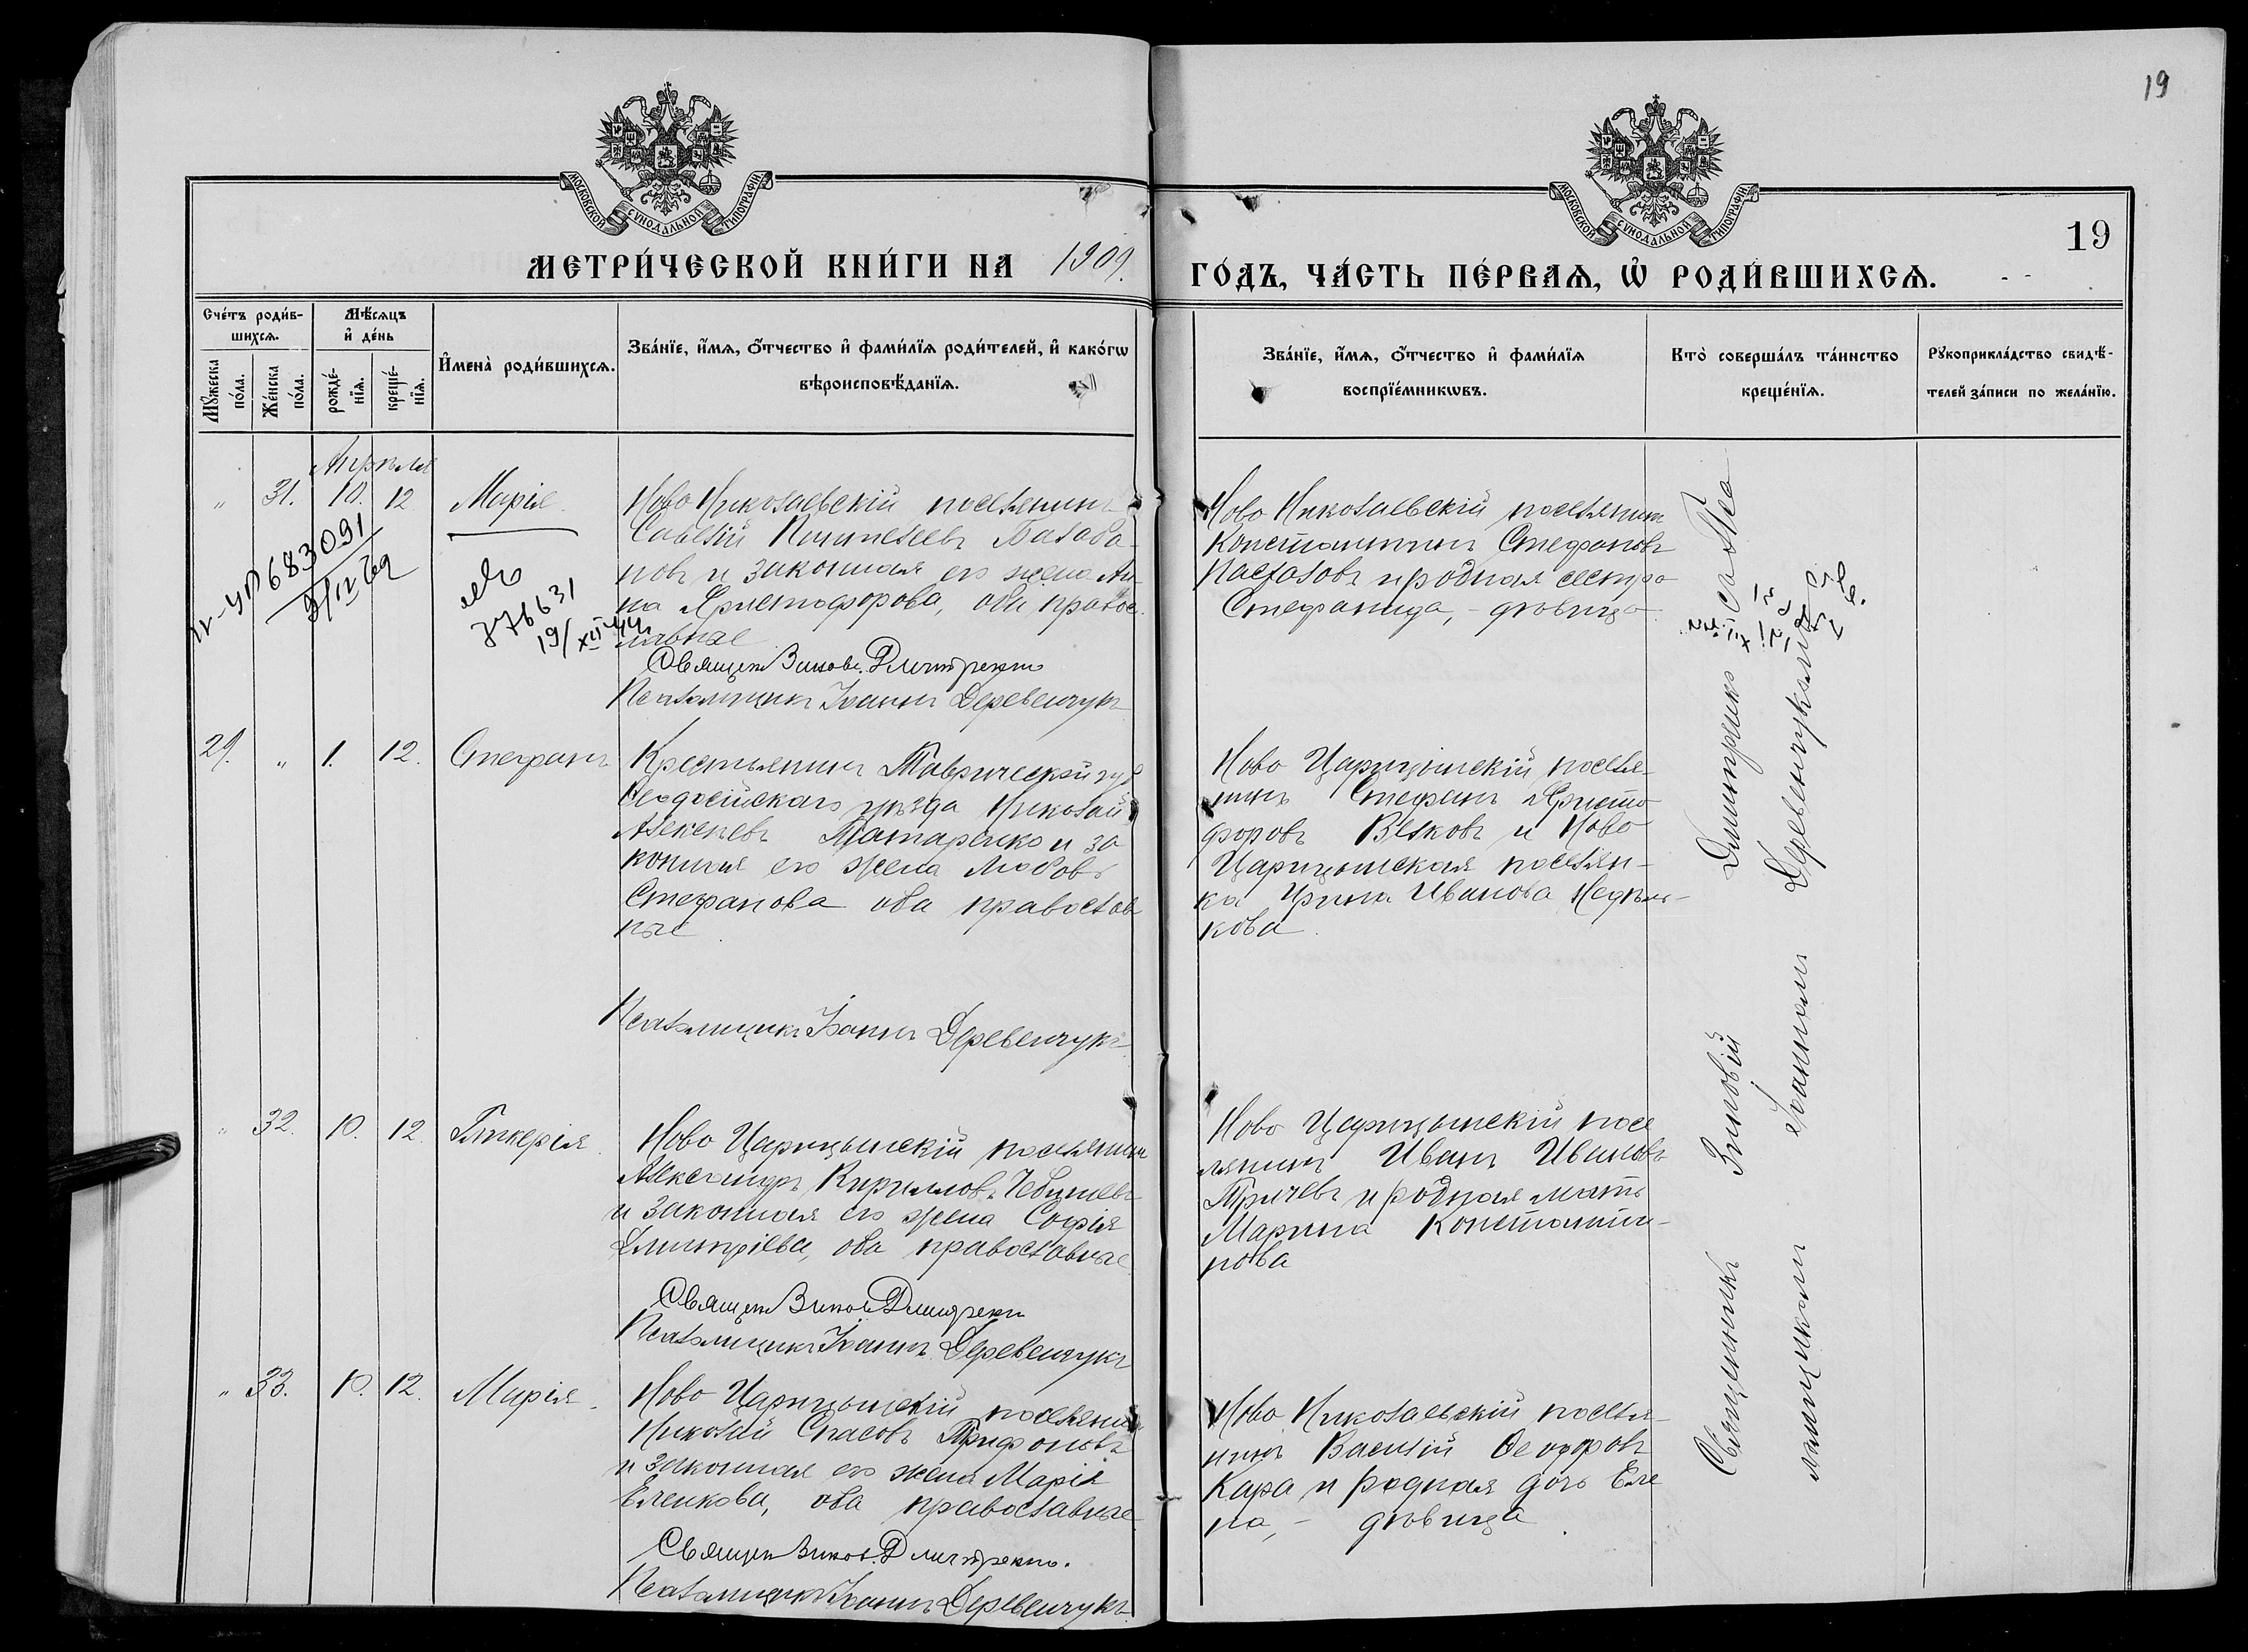 19
МОСКОВСКОЙ СѴНОДАЛЬНОЙ ТИПОГРАФІИ
МОСКОВСКОЙ СѴНОДАЛЬНОЙ ТИПОГРАФІИ
19
МЕТРИ́ЧЕСКОЙ КНИ́ГИ НА 1909.
ГО́ДЪ, ЧА́СТЬ ПЕ́РВАѦ, Ѡ҆ РОДИ́ВШИХСѦ.
Сче́тъ роди́в-
шихсѧ.
Мꙋ́жеска по́ла.
Же́нска по́ла.
Мѣ́сѧцъ
и҆ де́нь
рожде́-
нїѧ.
креще́-
нїѧ.
И҆мена̀ роди́вшихсѧ.
Зва́нїе, и҆́мѧ, ѻ҆́тчество и҆ фами́лїѧ роди́телей, и҆ како́гѡ
вѣроисповѣ́данїѧ.
Зва́нїе, и҆́мѧ, ѻ҆́тчество и҆ фами́лїѧ
воспрїе́мникѡвъ.
Кто̀ соверша́лъ та́инство
креще́нїѧ.
Рꙋкоприкла́дство свидѣ́-
телей за́писи по жела́нїю.
Апрѣля
" 31. 10. 12 Марія
Ново Николаевскій поселянинъ
Савелій Балаба-
новъ и законная его жена Ан-
на Христофорова, оба правос-
лавные
Священ. Зинов. Дмитренко
Псаломщикъ Іоаннъ Деревенчукъ
683091
376631
19/XII 44
Ново Николаевскій поселянинъ
Константинъ Стефановъ
и родная сестра
Стефанида, - дѣвица
29. " 1. 12. Стефанъ
Крестьянинъ Таврической губ
Ѳеодосійскаго уѣзда Николай
Алексѣевъ Татаренко и за
конная его жена Любовь
Стефанова оба православ
ные
Псаломщикъ Іоаннъ Деревенчукъ
Ново Царицынскій поселя-
нинъ Стефанъ Христо
форовъ Велковъ и Ново
Царицынская поселян-
ка Ирина Иванова Недѣл-
кова
" 32. 10. 12. Гликерія
Ново Царицынскій поселянинъ
Александръ Кирилловъ
и законная его жена Софія
Дмитріева, оба православные
Священ. Зинов. Дмитренко
Псаломщикъ Іоаннъ Деревенчукъ
Ново Царицынскій посе
лянинъ Иванъ Ивановъ
и родная мать
Марина Константи-
нова
" 33. 10. 12. Марія.
Ново Царицынскій поселянинъ
Николай Спасовъ Трифоновъ
и законная его жена Марія
Еленкова, оба православные
Священ. Зинов. Дмитренко.
Псаломщикъ Іоаннъ Деревенчукъ
Ново Николаевскій поселя-
нинъ Василій Ѳеодоровъ
Кара и родная дочь Еле
на, - дѣвица
Священникъ Зиновій Дмитренко
ломщикомъ Іоанномъ Деревенчукомъ